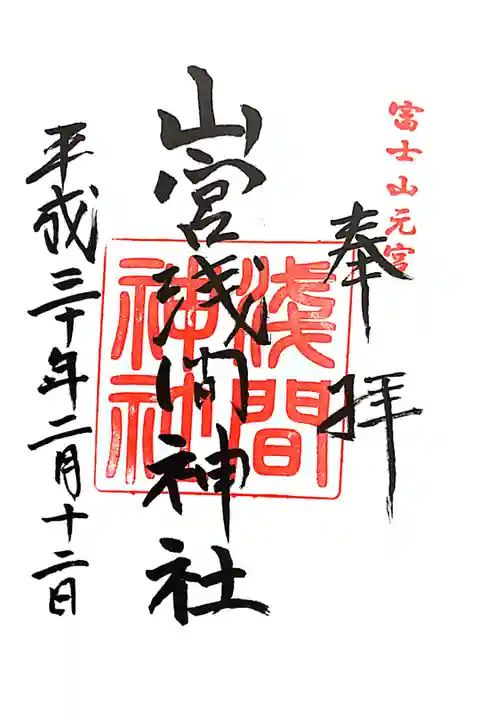 富士山元宮
奉拝
山宮浅間神社
淺間神社
平成三十年二月十二日